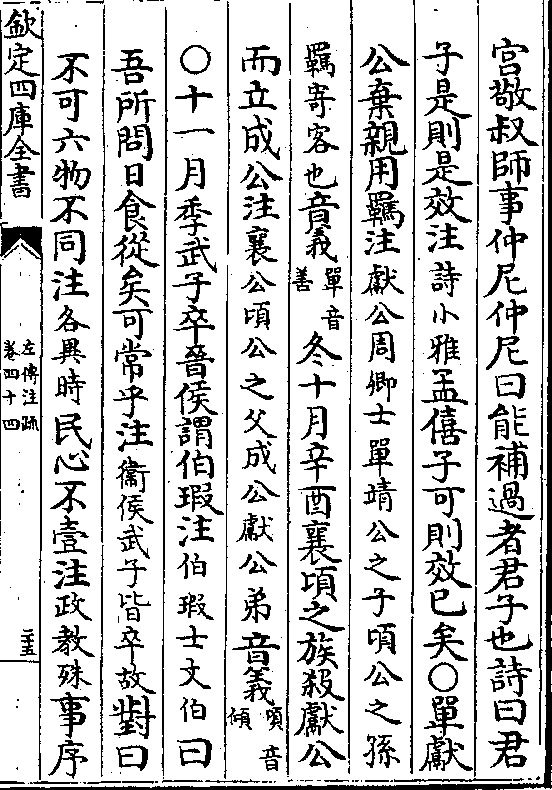 宫敬叔師事仲尼仲尼曰能補過者君子也詩曰君
子是則是效注詩小雅孟僖子可則效已矣○單獻
公棄親用羈注獻公周卿士單靖公之子頃公之孫
羈寄客也音義單音善冬十月辛酉襄頃之族殺獻公
而立成公注襄公頃公之父成公獻公弟音義頃音傾
○十一月季武子卒晉侯謂伯瑕注伯瑕士文伯曰
吾所問日食從矣可常乎注衞侯武子皆卒故對曰
不可六物不同注各異時民心不壹注政教殊事序
欽定四庫全書
左傳注疏
卷四十四
二十五